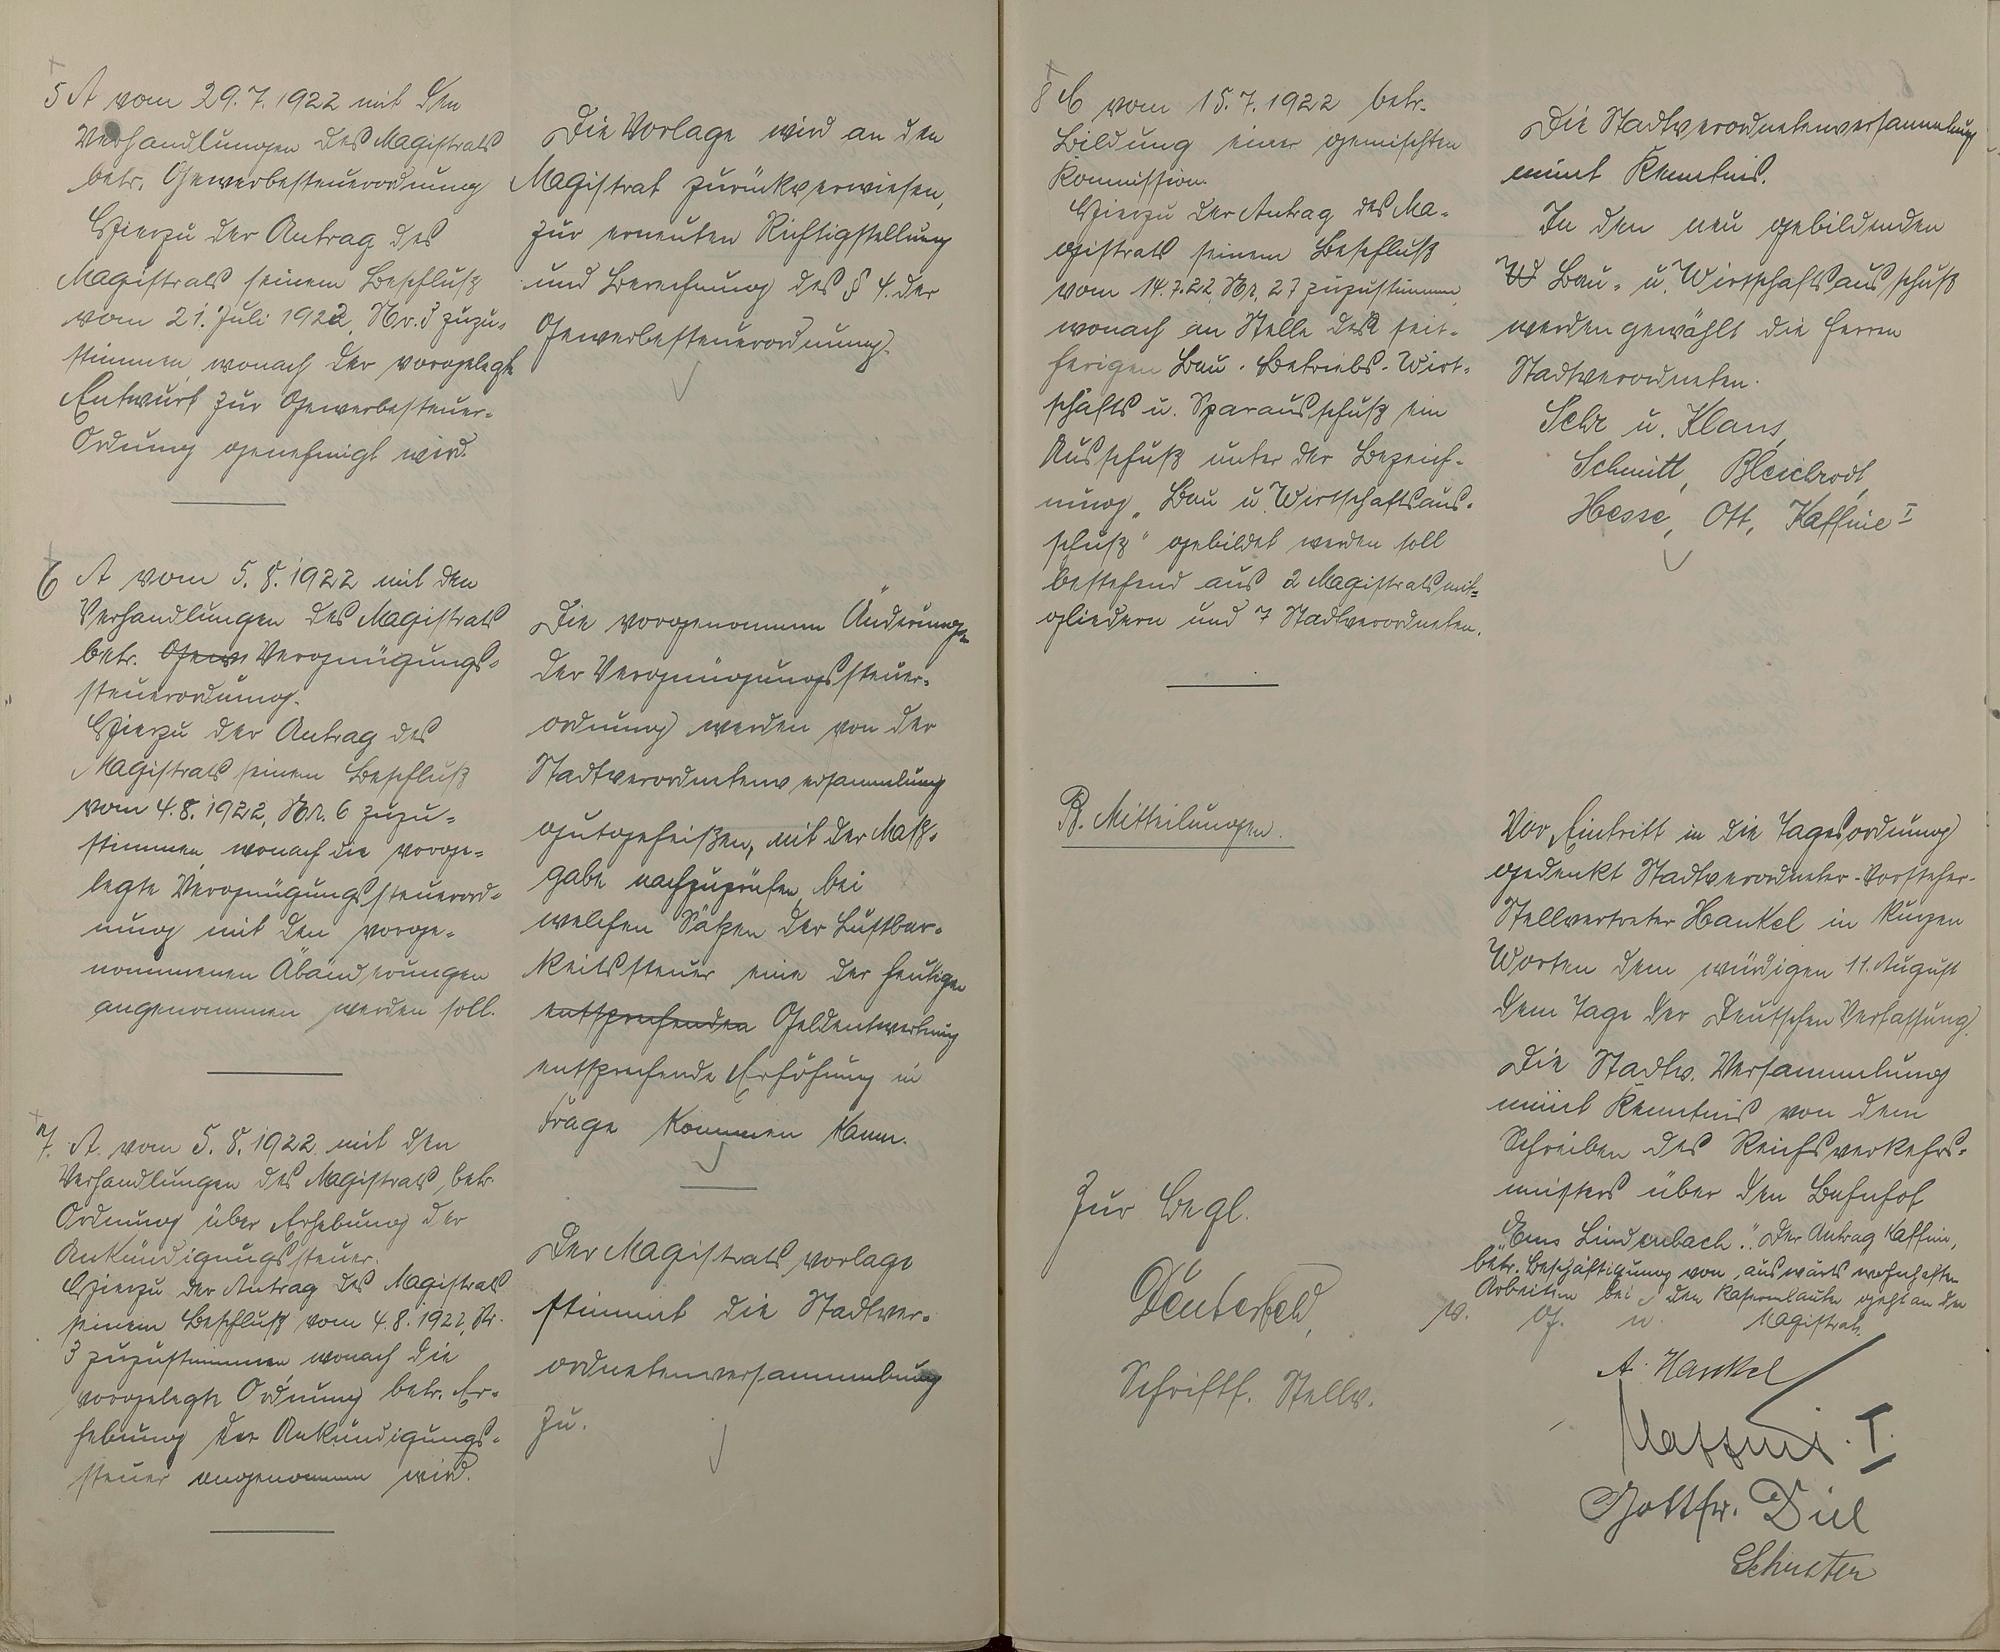 5 A vom 29.7.1922 mit den
Verhandlungen des Magistrats
betr. Gewerbesteuerordnung
Hierzu der Antrag des
Magistrats seinem Beschluß
vom 21. Juli 1922, Nr. 3 zuzu-
stimmen wonach der vorgelegte
Entwurf zur Gewerbesteuer-
Ordnung genehmigt wird.
Die Vorlage wird an den
Magistrat zurückverwiesen,
zur erneuten Richtigstellung
und Berechnung des § 4. der
Gewerbesteuerordnung.
6 A vom 5.8.1922 mit den
Verhandlungen des Magistrats
betr. Gewe Vergnügungs-
steuerordnung.
Hierzu der Antrag des
Magistrats seinem Beschluß
vom 4.8.1922, Nr. 6 zuzu-
stimmen, wonach die vorge-
legte Vergnügungssteuerord-
nung mit den vorge-
nommenen Abänderungen
angenommen werden soll.
Die vorgenommen Änderungen
der Vergnügungssteuer-
ordnung werden von der
Stadtverordnetenversammlung
gutgeheißen, mit der Maß-
gabe nachzuprüfen, bei
welchen Sätzen der Lustbar-
keitssteuer eine der heutigen
entsprechenden Geldentwertung
entsprechende Erhöhung in
Frage kommen kann.
7. A. vom 5.8.1922 mit den
Verhandlungen des Magistrats, betr.
Ordnung über Erhebung der
Ankündigungssteuer.
Hierzu der Antrag des Magistrats
seinem Beschluß vom 4.8.1922, Nr.
3 zuzustimmen wonach die
vorgelegte Ordnung betr. Er-
hebung der Ankündigungs-
steuer angenommen wird.
Der Magistratsvorlage
stimmt die Stadtver-
ordnetenversammlung
zu.
8 C vom 15.7.1922 betr.
Bildung einer gemischten
Kommission.
Hierzu der Antrag des Ma-
gistrats seinem Beschluß
vom 14.7.22, Nr. 27 zuzustimmen,
wonach an Stelle des seit-
herigen Bau- Betriebs- Wirt-
schafts u. Sparausschuß ein
Ausschuß unter der Bezeich-
nung „Bau u. Wirtschaftsaus-
schuß" gebildet werden soll
bestehend aus 2 Magistratsmit-
gliedern und 7 Stadtverordneten.
Die Stadtverordnetenversammlung
nimt Kenntnis.
In den neu gebildenden
W Bau- u. Wirtschaftsausschuß
werden gewählt die Herren
Stadtverordneten.
Sehr u. Klaus,
Schmitt, Bleichrodt,
Hesse, Ott, Kaffine I
B. Mitteilungen.
Vor Eintritt in die Tagesordnung
gedenkt Stadtverordneter-Vorsteher-
Stellvertreter Hankel in kurzen
Worten dem würdigen 11. August
dem Tage der Deutschen Verfassung.
Die Stadtv. Versammlung
nimt Kenntnis von dem
Schreiben des Reichsverkehrs-
ministers über den Bahnhof
„Ems Lindenbach". Der Antrag Kaffine,
betr. Beschäftigung von auswärts wohnhaften
Arbeitern bei den Kasernbauten geht an den
Magistrat.
v. G. u.
A. Hankel
Kaffine. I.
Gottfr. Diel
Schuster
Zur Begl.
Deuterfeld,
Schriftf. Stellv.